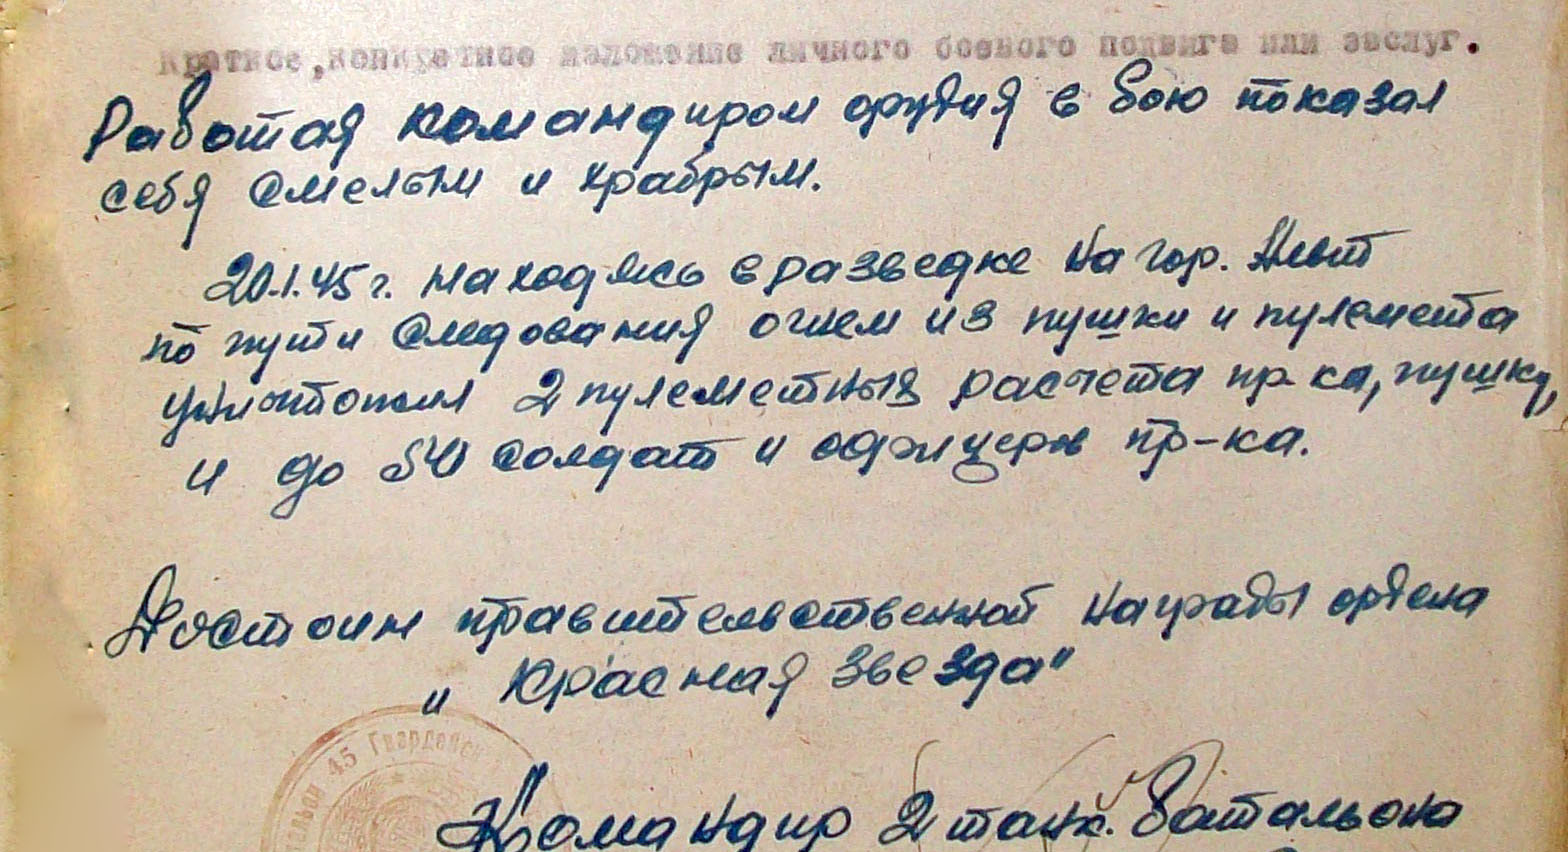 Краткое, конкретное изложение личного боевого подвига или заслуг.
Работая командиром орудия в бою показал
себя смелым и храбрым.
20.1.45 г. находясь в разведке на гор.
по пути следования огнем из пушки и пулемета
уничтожил 2 пулеметных расчета пр-ка, пушку,
и до солдат и офицеров пр-ка.
Достоин правительственной награды ордена
„Красная звезда"
45 Гвардейск
Командир 2 танк. батальона